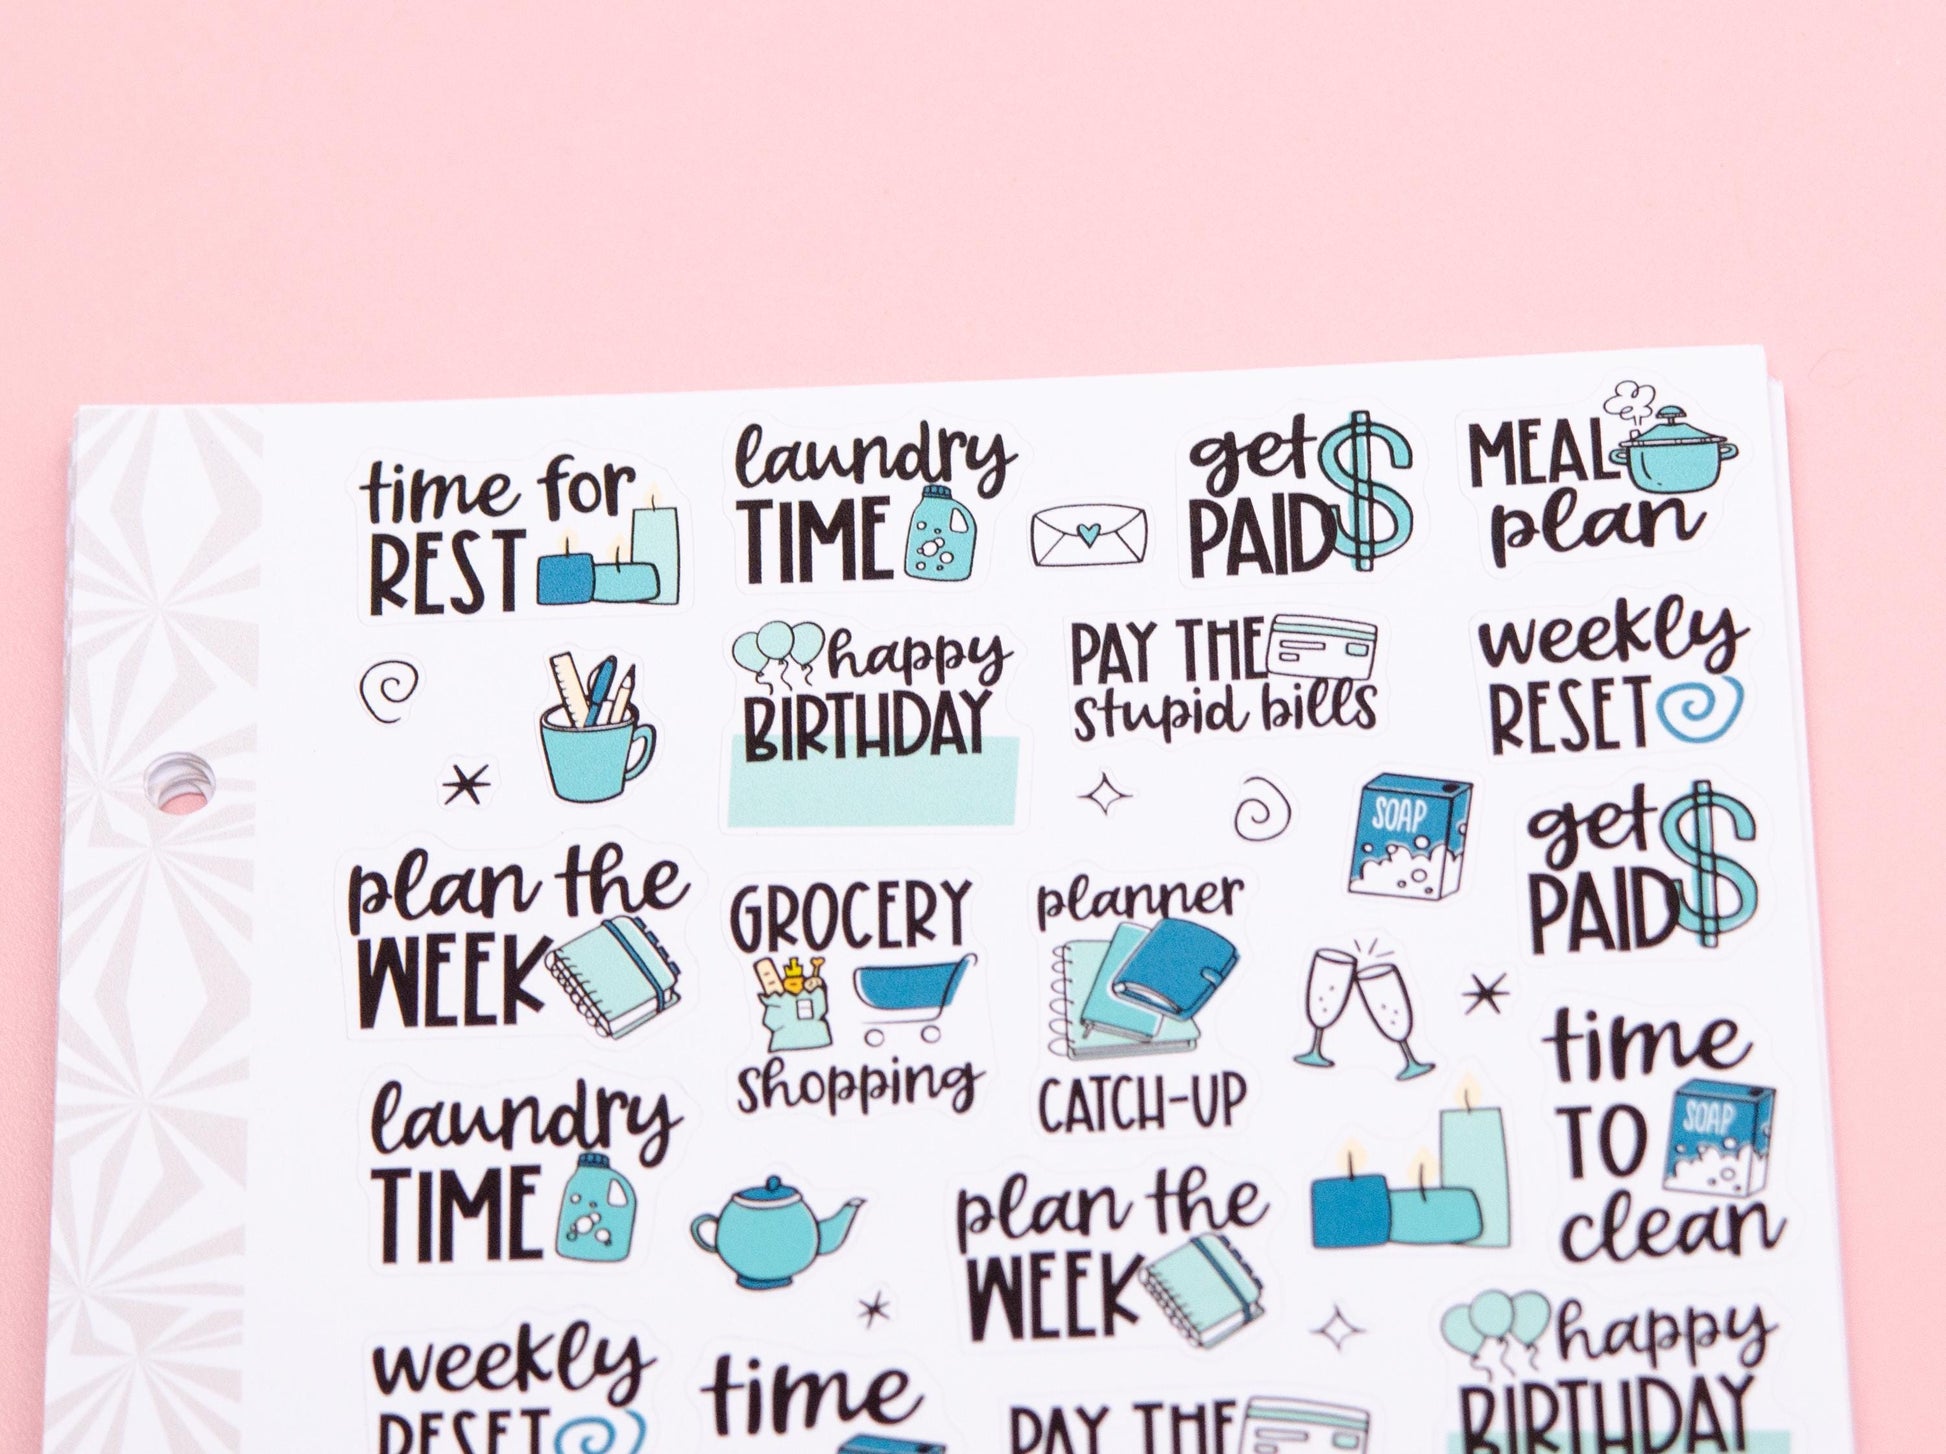 time for
REST
laundry
TIME
get
PAID
MEAL
plan
happy
BIRTHDAY
PAY THE
stupid bills
weekly
RESET
SOAP
get
PAID
plan the
WEEK
GROCERY
shopping
planner
CATCH-UP
time
TO
SOAP
clean
laundry
TIME
plan the
WEEK
happy
BIRTHDAY
weekly
RESET
time
PAY THE